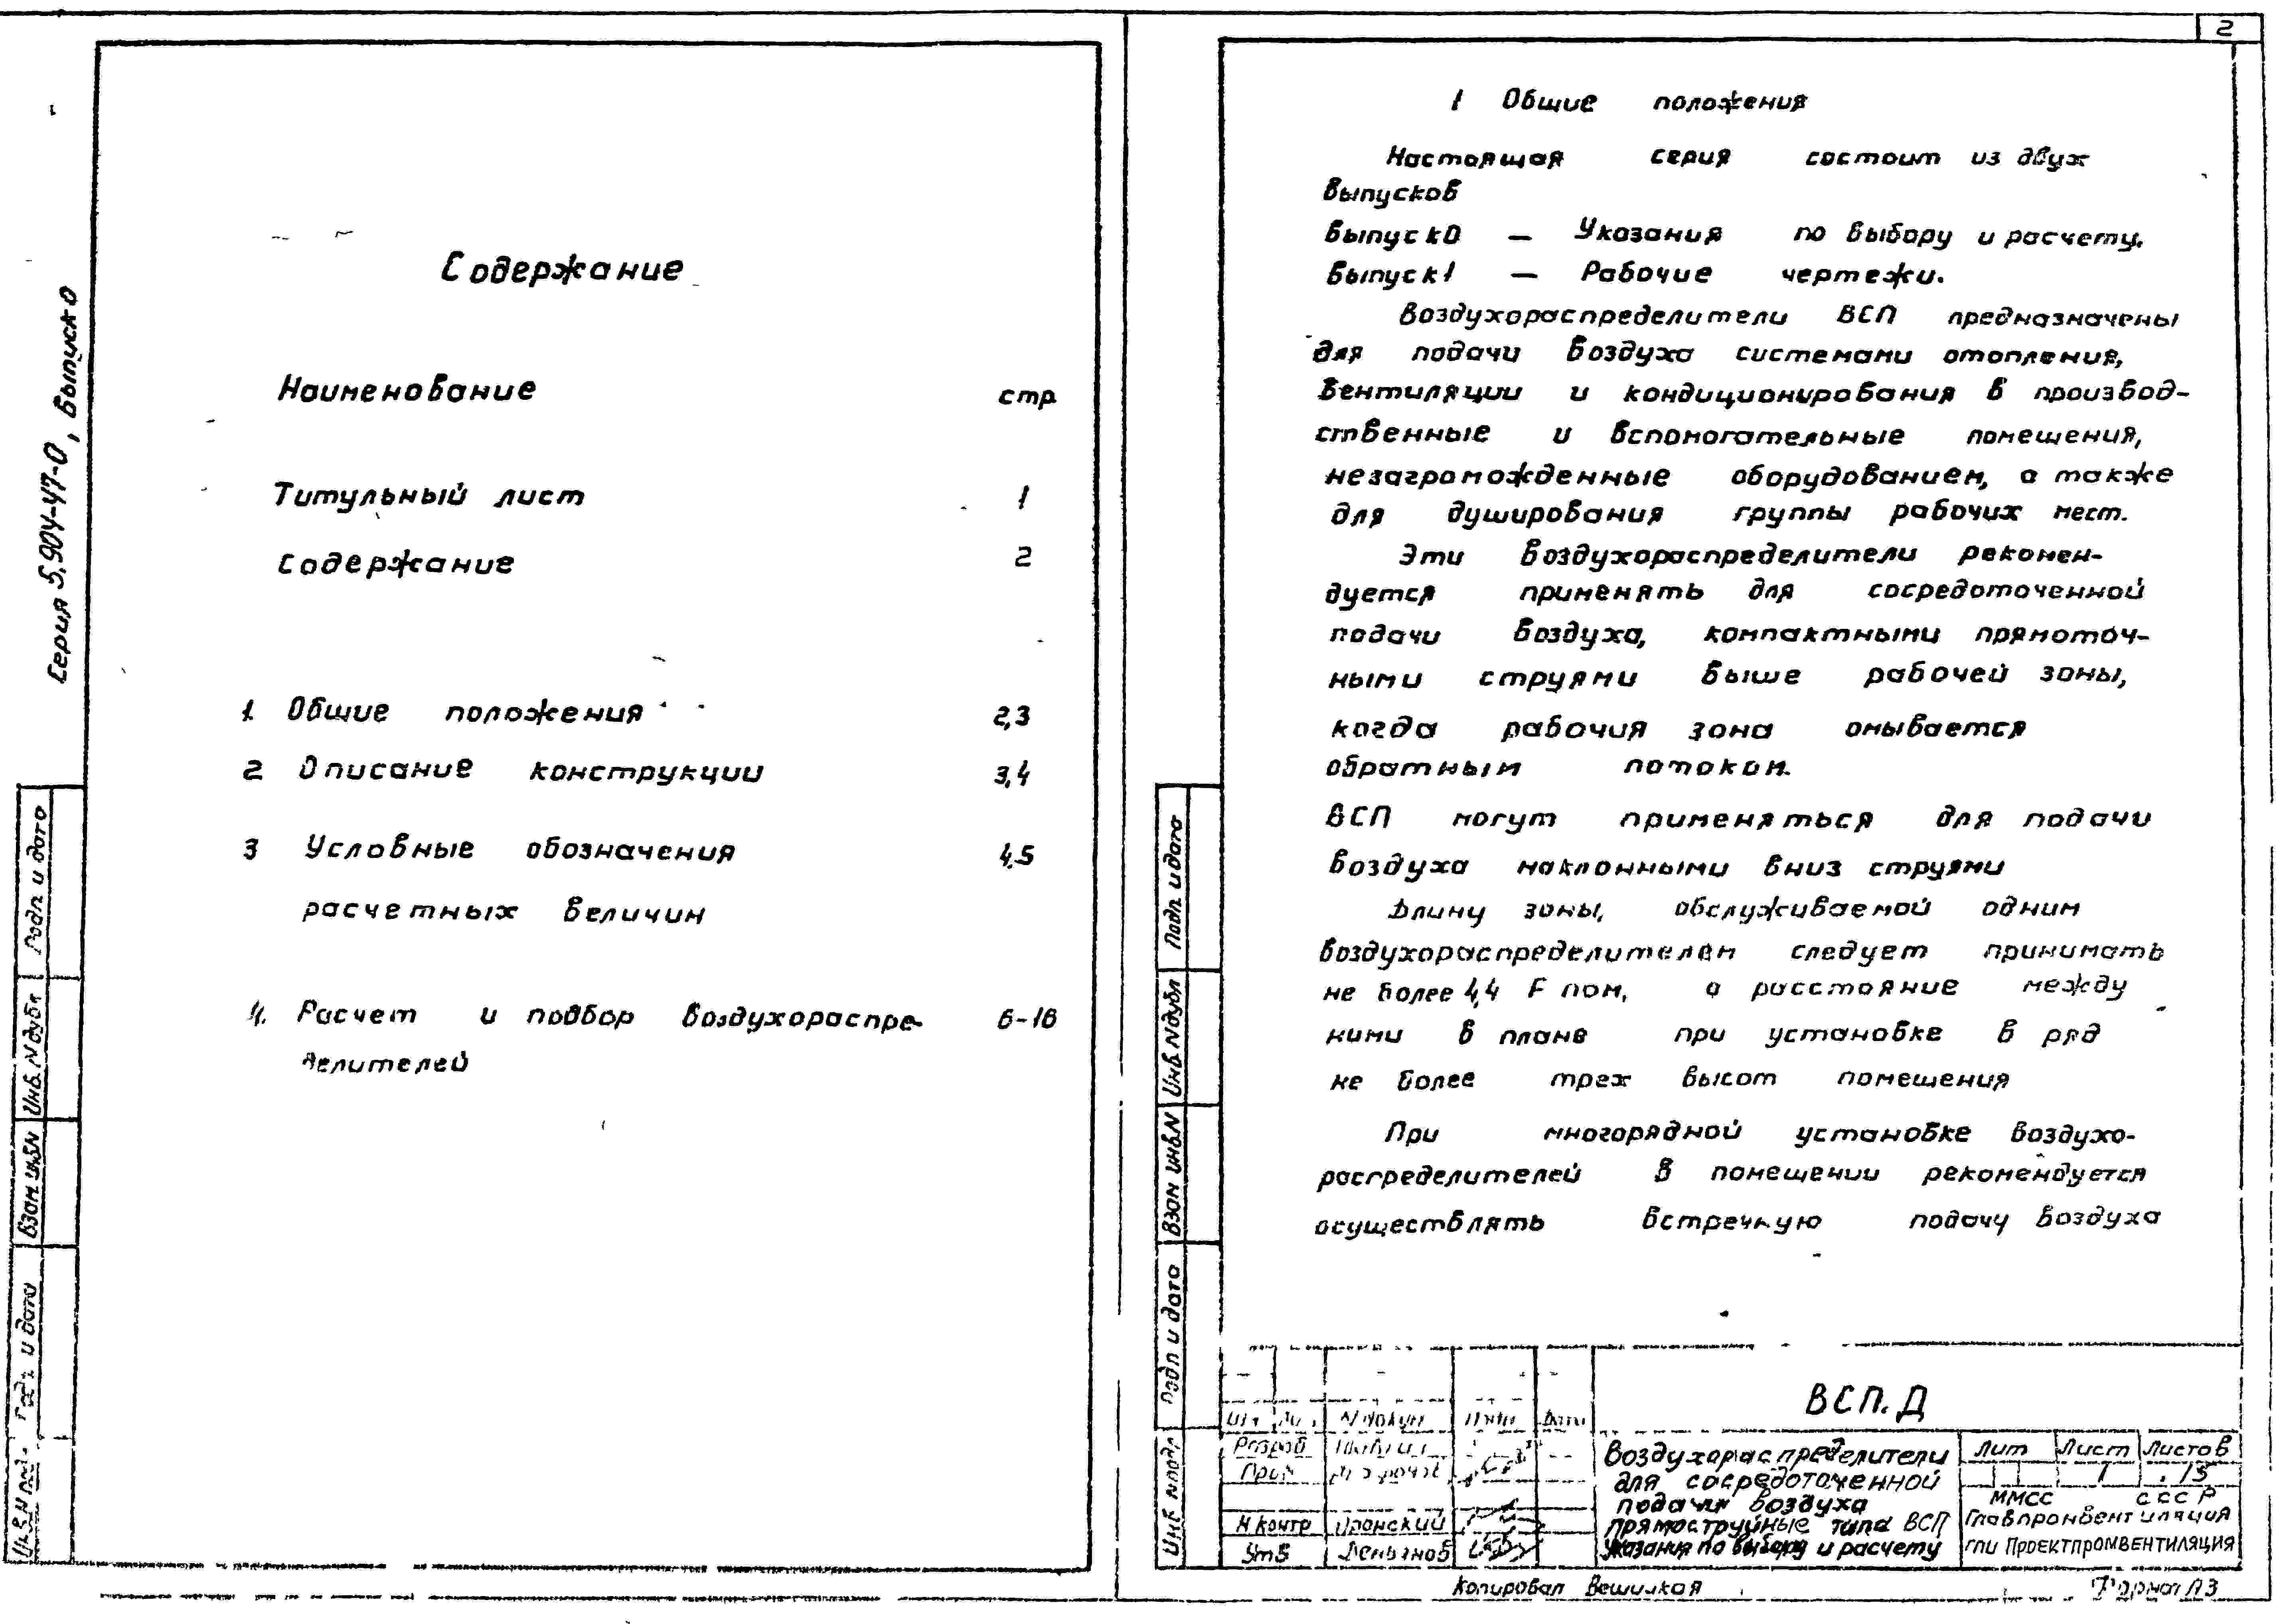 2
Серия 5.904-47-0, Выпуск 0
Содержание
Наименование стр
Титульный лист 1
Содержание 2
1. Общие положения 2,3
2 Описание конструкции 3,4
3 Условные обозначения 4,5
расчетных величин
4. Расчет и подбор воздухораспре-
делителей 6-16
Подп. и дата
Инв. N дубл
Взам инв. N
Подп и дата
Инв. N подл
1 Общие положения
Настоящая серия состоит из двух
выпусков
Выпуск 0 — Указания по выбору и расчету.
Выпуск 1 — Рабочие чертежи.
Воздухораспределители ВСП предназначены
для подачи воздуха системами отопления,
вентиляции и кондиционирования в производ-
ственные и вспомогательные помещения,
незагроможденные оборудованием, а также
для душирования группы рабочих мест.
Эти воздухораспределители рекомен-
дуется применять для сосредоточенной
подачи воздуха, компактными прямоточ-
ными струями выше рабочей зоны,
когда рабочия зона омывается
обратным потоком.
ВСП могут применяться для подачи
воздуха наклонными вниз струями
Длину зоны, обслуживаемой одним
воздухораспределителем следует принимать
не более 4,4 F пом, а расстояние между
ними в плане при установке в ряд
не более трех высот помещения
При многорядной установке воздухо-
распределителей в помещении рекомендуется
осуществлять встречную подачу воздуха
Подп. и дата
Инв. N дубл
Взам инв. N
Подп и дата
Инв. N подл
ВСП. Д
Изм Лис N докум Подп Дата
Разраб
Пров
Н контр Пронский
Утв
Воздухораспределители
для сосредоточенной
подачи воздуха
прямоструйные типа ВСП
Указания по выбору и расчету
Лит Лист Листов
1 15
ММСС СССР
Главпромвентиляция
ГПИ ПРОЕКТПРОМВЕНТИЛЯЦИЯ
Копировал
Формат А3